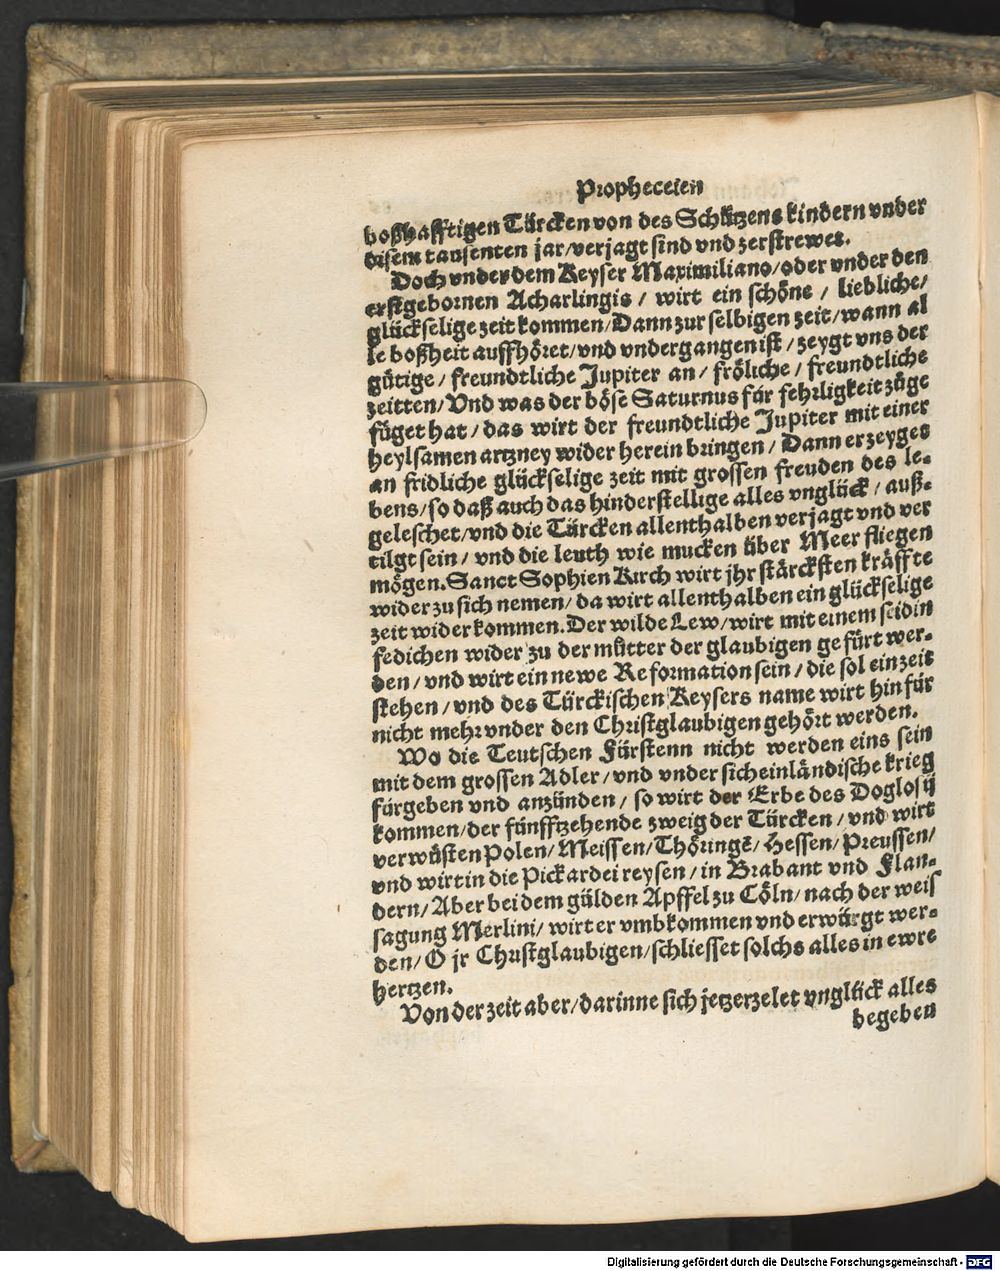 Propheceien
boßhafftigen Türcken von des Schützens kindern vnder
disem tausenten jar/verjagt sind vnd zerstrewet.
Doch vnder dem Keyser Maximiliano/oder vnder den
erstgebornen Acharlingis / wirt ein schöne / liebliche/
glückselige zeit kommen/Dann zur selbigen zeit/wann al
le boßheit auffhöret/vnd vndergangen ist / zeygt vns der
gütige / freundtliche Jupiter an / fröliche / freundtliche
zeitten/Vnd was der böse Saturnus für fehrligkeit züge
füget hat / das wirt der freundtliche Jupiter mit einer
heylsamen artzney wider herein bringen / Dann er zeyget
an fridliche glückselige zeit mit grossen freuden des le-
bens/so daß auch das hinderstellige alles vnglück / auß-
geleschet/vnd die Türcken allenthalben verjagt vnd ver
tilgt sein / vnd die leuth wie mucken über Meer fliegen
mögen. Sanct Sophien Kirch wirt jhr stärcksten kräffte
wider zu sich nemen/da wirt allenthalben ein glückselige
zeit wider kommen. Der wilde Lew/wirt mit einem seidin
fedichen wider zu der mütter der glaubigen gefürt wer-
den/vnd wirt ein newe Reformation sein/die sol ein zeit
stehen / vnd des Türckischen Keysers name wirt hinfür
nicht mehr vnder den Christglaubigen gehört werden.
Wo die Teutschen Fürstenn nicht werden eins sein
mit dem grossen Adler/vnd vnder sich einländische krieg
fürgeben vnd anzünden / so wirt der Erbe des Doglosij
kommen/der fünfftzehende zweig der Türcken/vnd wirt
verwüsten Polen/Meissen/Thöringē/Hessen/Preussen/
vnd wirt in die Pickardei reysen/in Brabant vnd Flan-
dern/Aber bei dem gülden Apffel zu Cöln/nach der weis
sagung Merlini/wirt er vmbkommen vnd erwürgt wer-
den/O jr Christglaubigen/schliesset solchs alles in ewre
hertzen.
Von der zeit aber/darinne sich jetzerzelet vnglück alles
begeben
Digitalisierung gefördert durch die Deutsche Forschungsgemeinschaft - DFG